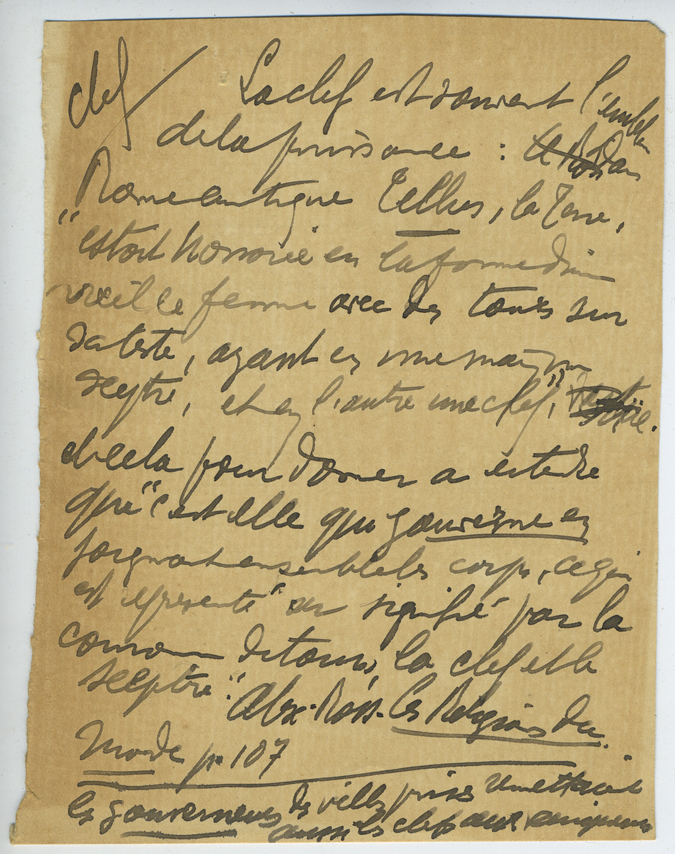 clef / La clef est souvent l'emblème
de la puissance : dans
Rome antique Tellus, la Terre,
"estoit honorée en la forme d'une
vieille femme avec des tours sur
sa teste, ayant en une main un
sceptre, et en l'autre une clef",
et cela pour donner a entendre
que "c'est elle qui gouverne en
joignant ensemble les corps, ce qui
est représenté" ou signifié par la
couronne de tours, la clef et le
sceptre". Alex. Ross. Les Religions du
Monde p. 107
les gouverneurs des villes prises remettaient
aussi les clefs aux vainqueurs